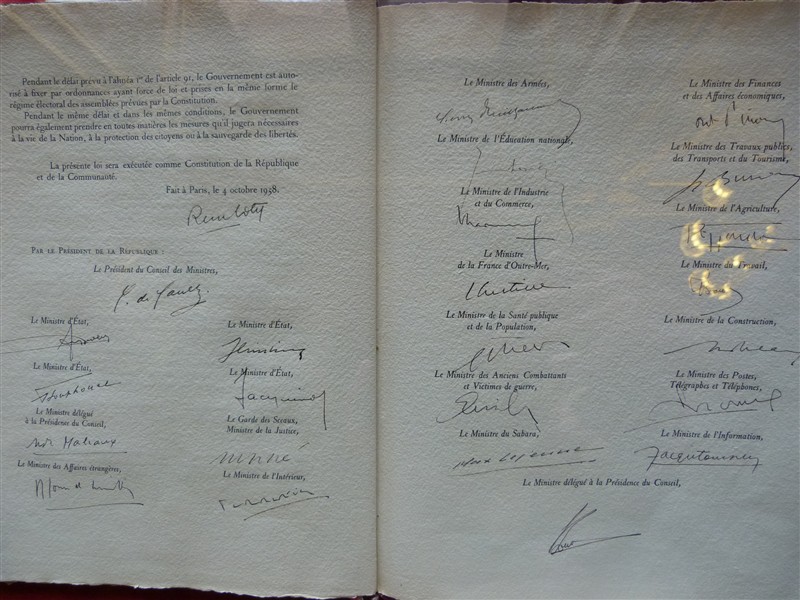 Pendant le délai prévu à l'alinéa 1er de l'article 91, le Gouvernement est auto-
risé à fixer par ordonnances ayant force de loi et prises en la même forme le
régime électoral des assemblées prévues par la Constitution.
Pendant le même délai et dans les mêmes conditions, le Gouvernement
pourra également prendre en toutes matières les mesures qu'il jugera nécessaires
à la vie de la Nation, à la protection des citoyens ou à la sauvegarde des libertés.
La présente loi sera exécutée comme Constitution de la République
et de la Communauté.
Fait à Paris, le 4 octobre 1958.
René Coty
Par le Président de la République :
Le Président du Conseil des Ministres,
C. de Gaulle
Le Ministre d'État,
Le Ministre d'État,
Le Ministre d'État,
Le Ministre d'État,
Jacquinot
Le Ministre délégué
à la Présidence du Conseil,
Le Garde des Sceaux,
Ministre de la Justice,
Malraux
Le Ministre des Affaires étrangères,
Le Ministre de l'Intérieur,
Le Ministre des Armées,
Le Ministre des Finances
et des Affaires économiques,
Le Ministre de l'Éducation nationale,
Le Ministre des Travaux publics,
des Transports et du Tourisme,
Le Ministre de l'Industrie
et du Commerce,
Le Ministre de l'Agriculture,
Le Ministre
de la France d'Outre-Mer,
Le Ministre du Travail,
Le Ministre de la Santé publique
et de la Population,
Le Ministre de la Construction,
Le Ministre des Anciens Combattants
et Victimes de guerre,
Le Ministre des Postes,
Télégraphes et Téléphones,
Le Ministre du Sahara,
Le Ministre de l'Information,
Max Lejeune
Le Ministre délégué à la Présidence du Conseil,